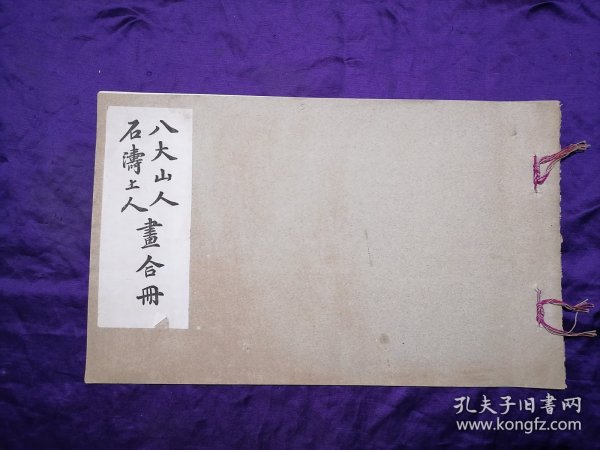 八大山人
石濤上人
畫合冊
孔夫子旧書网
www.kongfz.com